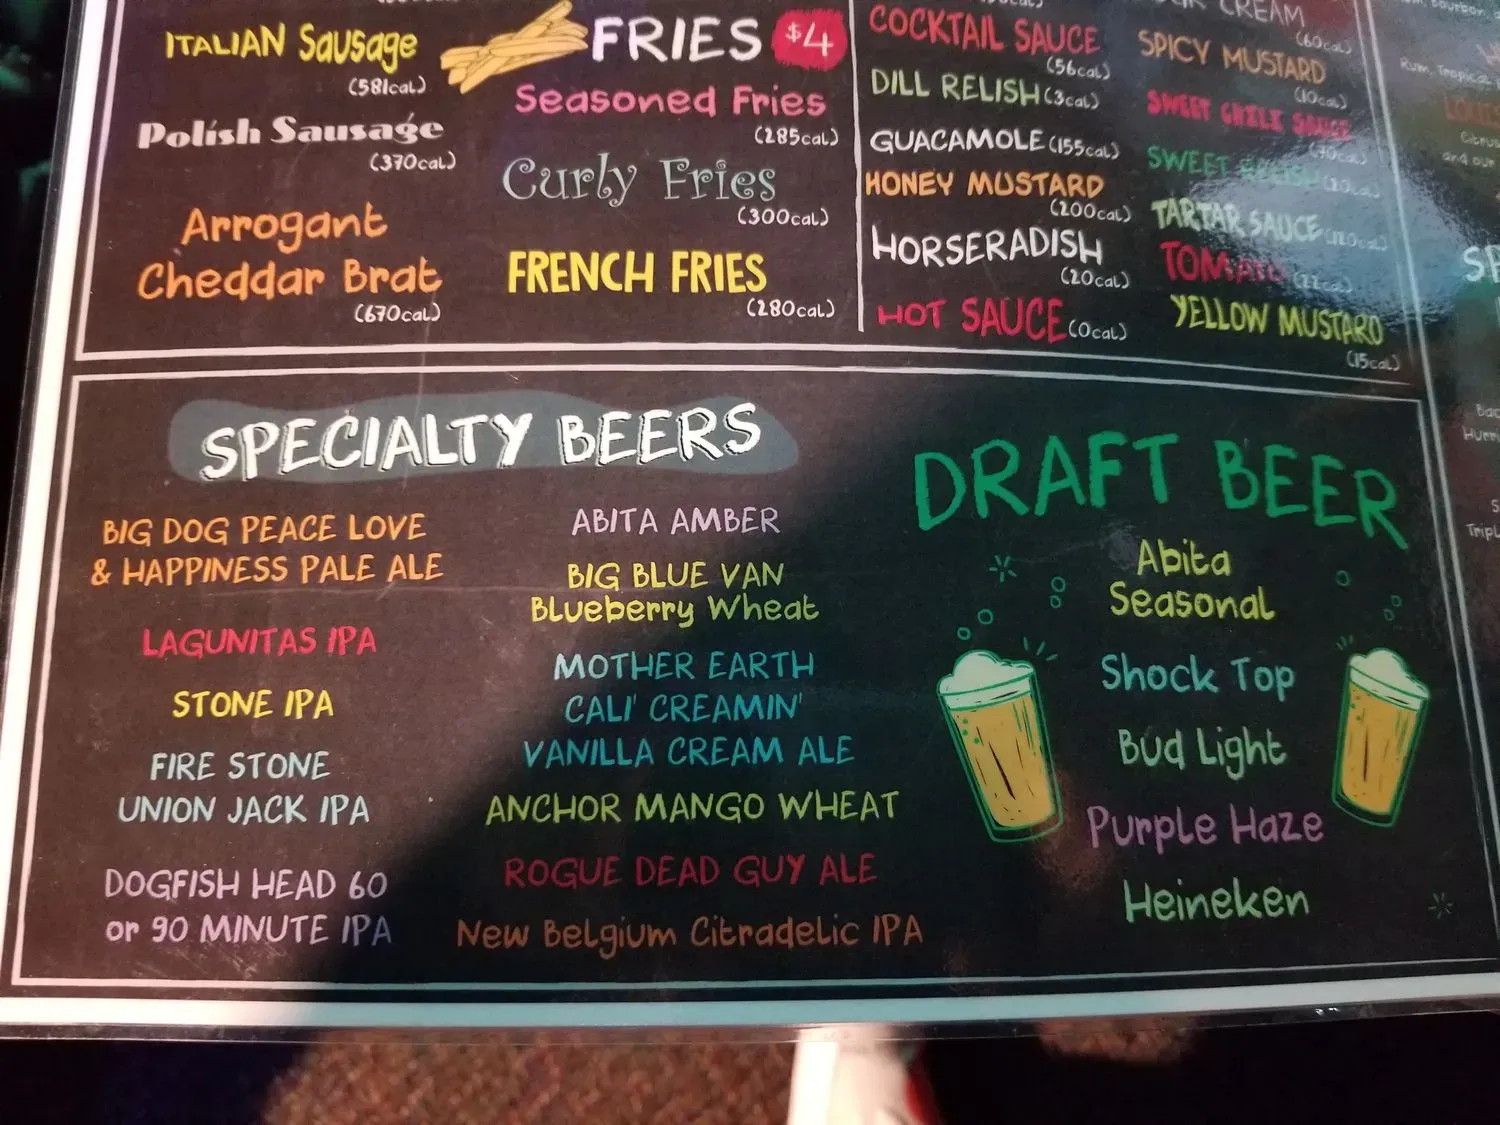 ITALIAN Sausage
(581cal)
Polish Sausage
(370cal)
Arrogant
Cheddar Brat
(670cal)
FRIES $4
Seasoned Fries
(285cal)
Curly Fries
(300cal)
FRENCH FRIES
(280cal)
COCKTAIL SAUCE
(56cal)
DILL RELISH (3cal)
GUACAMOLE (155cal)
HONEY MUSTARD
(200cal)
HORSERADISH
(20cal)
HOT SAUCE (0cal)
CREAM
(60cal)
SPICY MUSTARD
(10cal)
SWEET CHILI SAUCE
SWEET RELISH
TARTAR SAUCE
TOMATO
YELLOW MUSTARD
(15cal)
SPECIALTY BEERS
BIG DOG PEACE LOVE
& HAPPINESS PALE ALE
LAGUNITAS IPA
STONE IPA
FIRE STONE
UNION JACK IPA
DOGFISH HEAD 60
or 90 MINUTE IPA
ABITA AMBER
BIG BLUE VAN
Blueberry Wheat
MOTHER EARTH
CALI' CREAMIN'
VANILLA CREAM ALE
ANCHOR MANGO WHEAT
ROGUE DEAD GUY ALE
New Belgium Citradelic IPA
DRAFT BEER
Abita
Seasonal
Shock Top
Bud Light
Purple Haze
Heineken
Rum, Tropical
and our